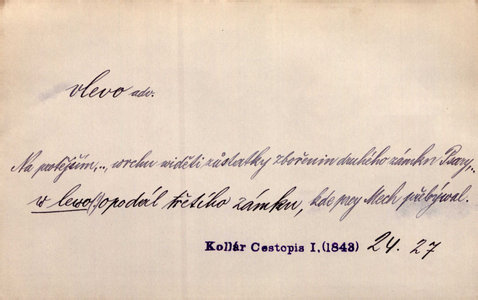 vlevo adv.
Na potějším,.. wrchu widěti zůstatky zbořenin druhého zámku Psary,..
w lewo(!) opodál třetího zámku, kde prey Mech přebýwal.
Kollár Cestopis I. (1843) 24. 27